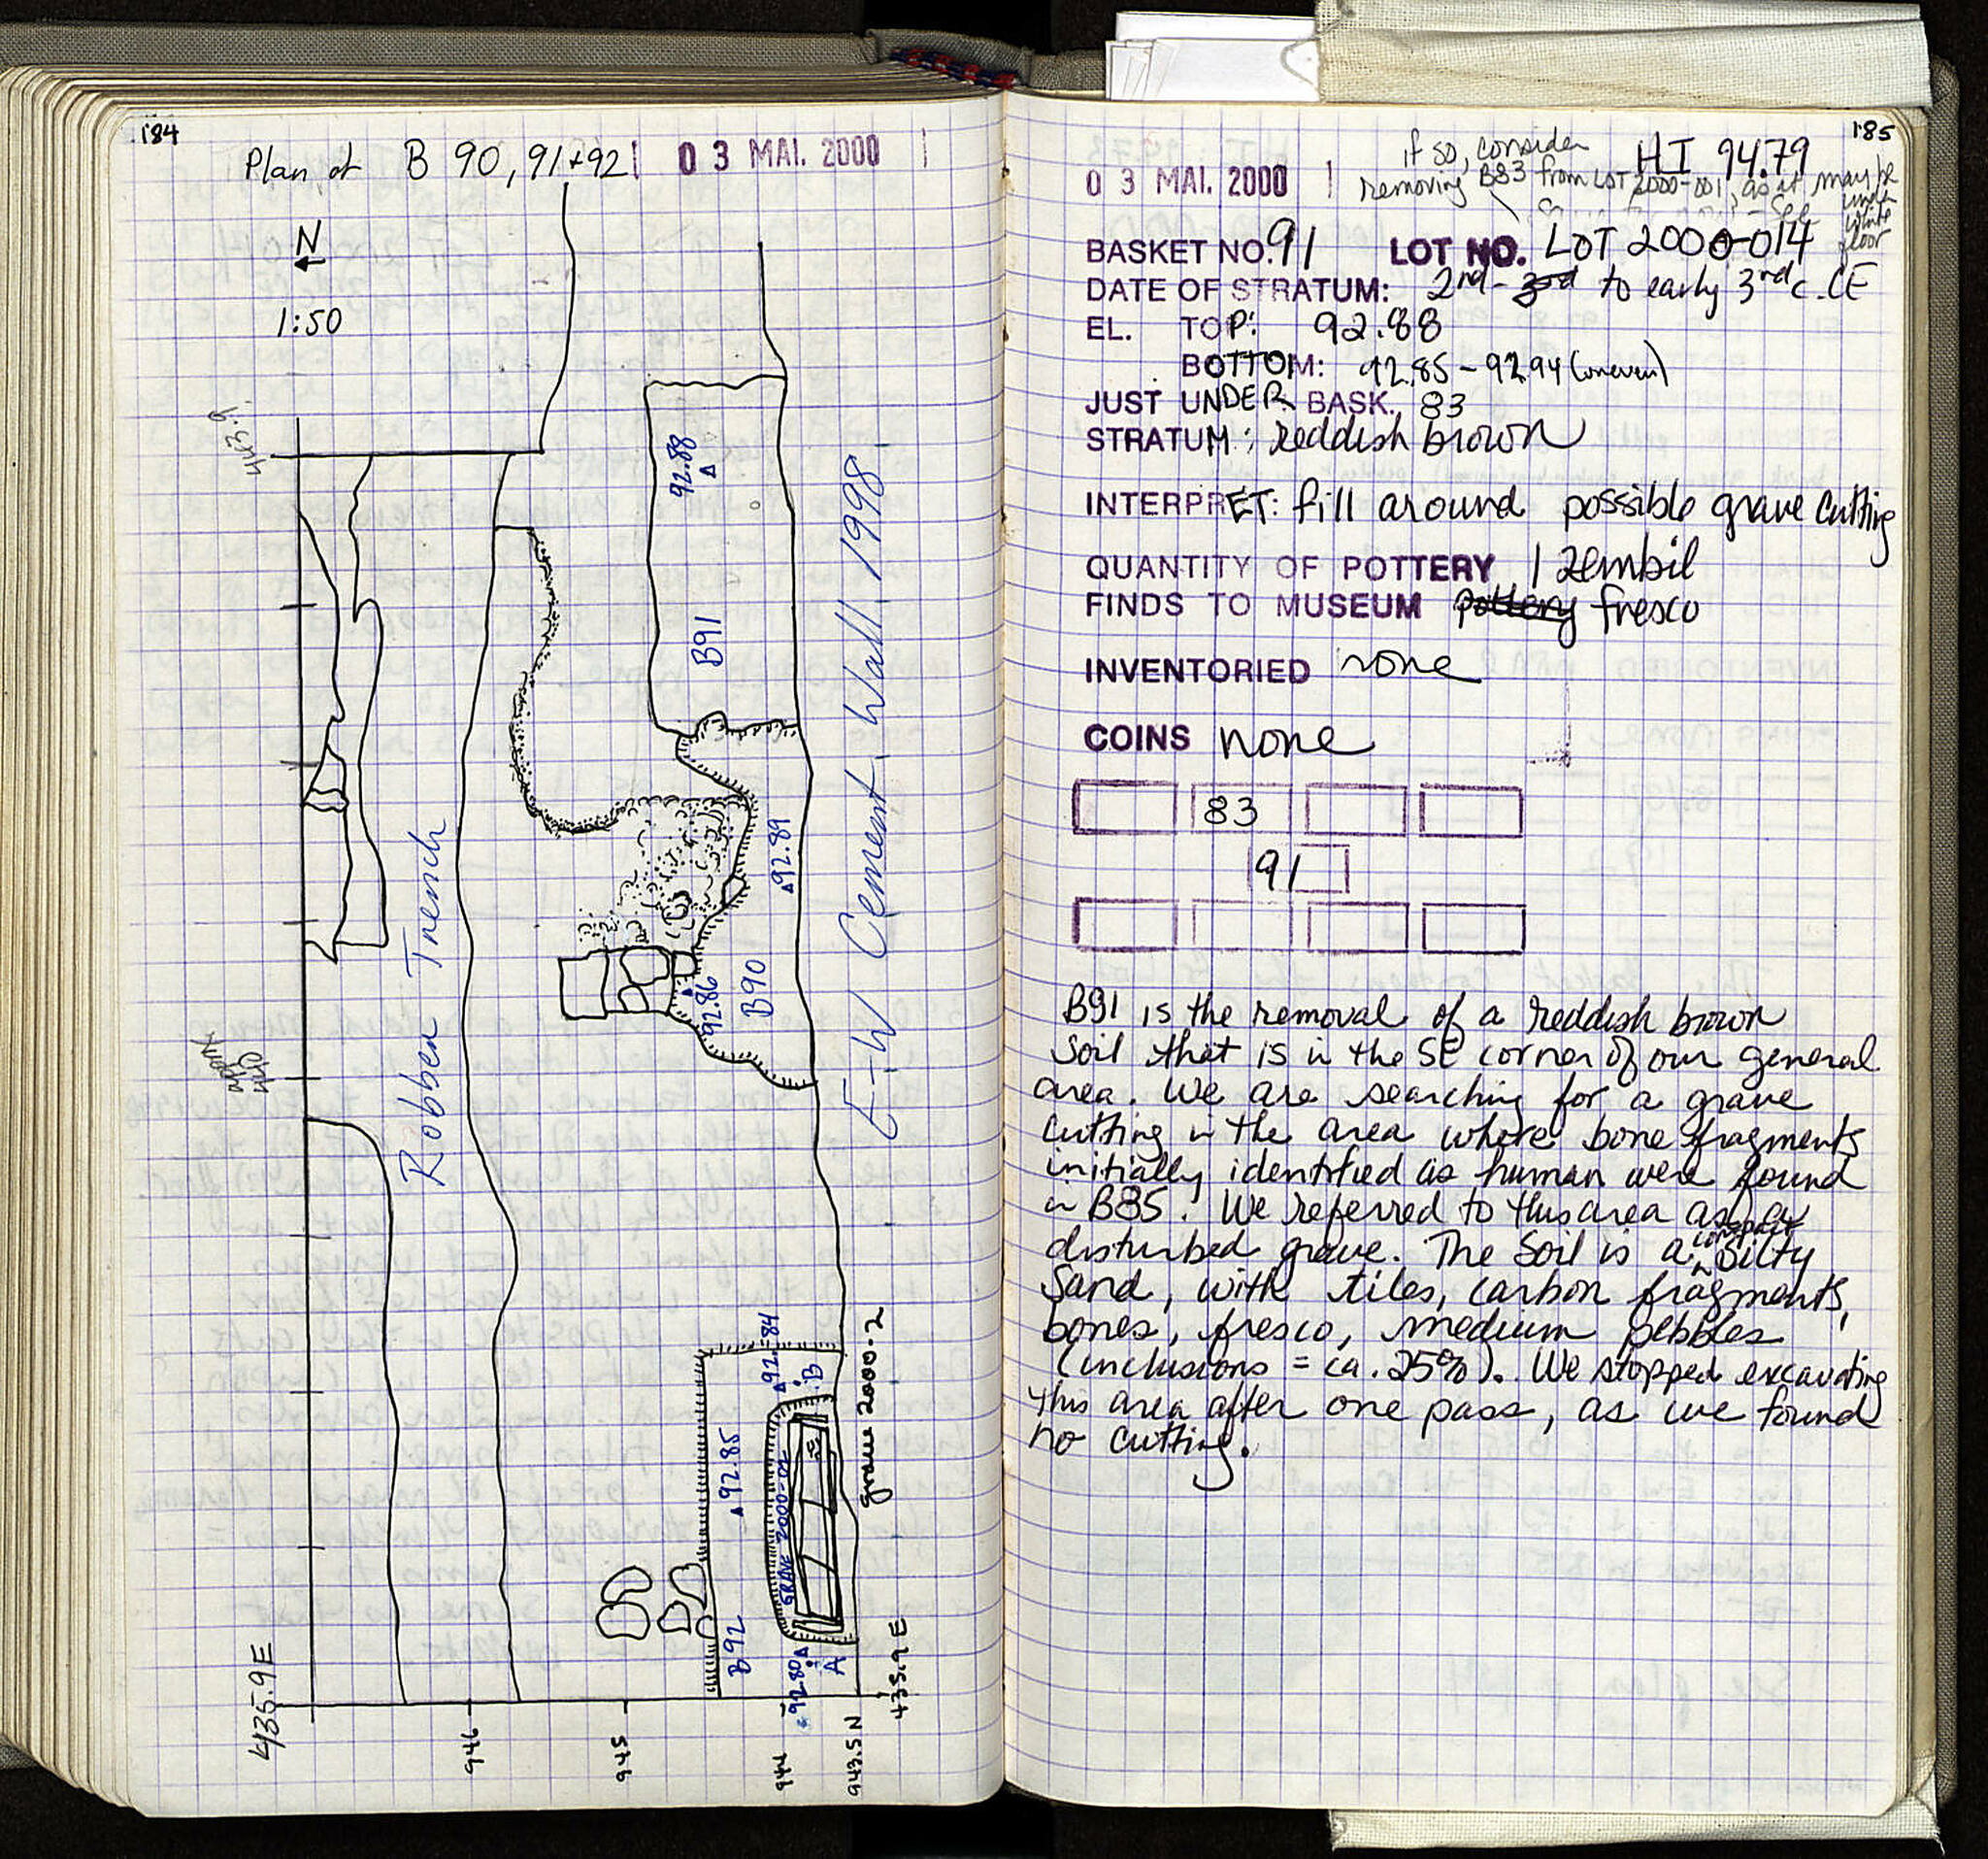 184
Plan of B 90, 91+92
03 MAI. 2000
N
1:50
443.9
Robber Trench
approx
440
92.88
B91
92.89
92.86
B90
E-W Cement Wall 1998
92.84
B
92.85
GRAVE 2000-02
grave 2000-2
B92
92.80
A
435.9E
946
945
944
943.5 N
435.9 E
185
03 MAI. 2000
HI 9479
if so, consider
removing B83 from LOT 2000-001, as it may be
under
white
floor
BASKET NO. 91 LOT NO. LOT 2000-014
DATE OF STRATUM: 2nd - 3rd to early 3rd c. CE
EL. TOP: 92.88
BOTTOM: 92.85 - 92.94 (uneven)
JUST UNDER BASK. 83
STRATUM: reddish brown
INTERPRET: fill around possible grave cutting
QUANTITY OF POTTERY 1 zembil
FINDS TO MUSEUM pottery fresco
INVENTORIED none
COINS none
83
91
B91 is the removal of a reddish brown
soil that is in the SE corner of our general
area. We are searching for a grave
cutting in the area where bone fragments
initially identified as human were found
in B85. We referred to this area as a
disturbed grave. The soil is a compact silty
sand, with tiles, carbon fragments,
bones, fresco, medium pebbles
(inclusions = ca. 25%). We stopped excavating
this area after one pass, as we found
no cutting.